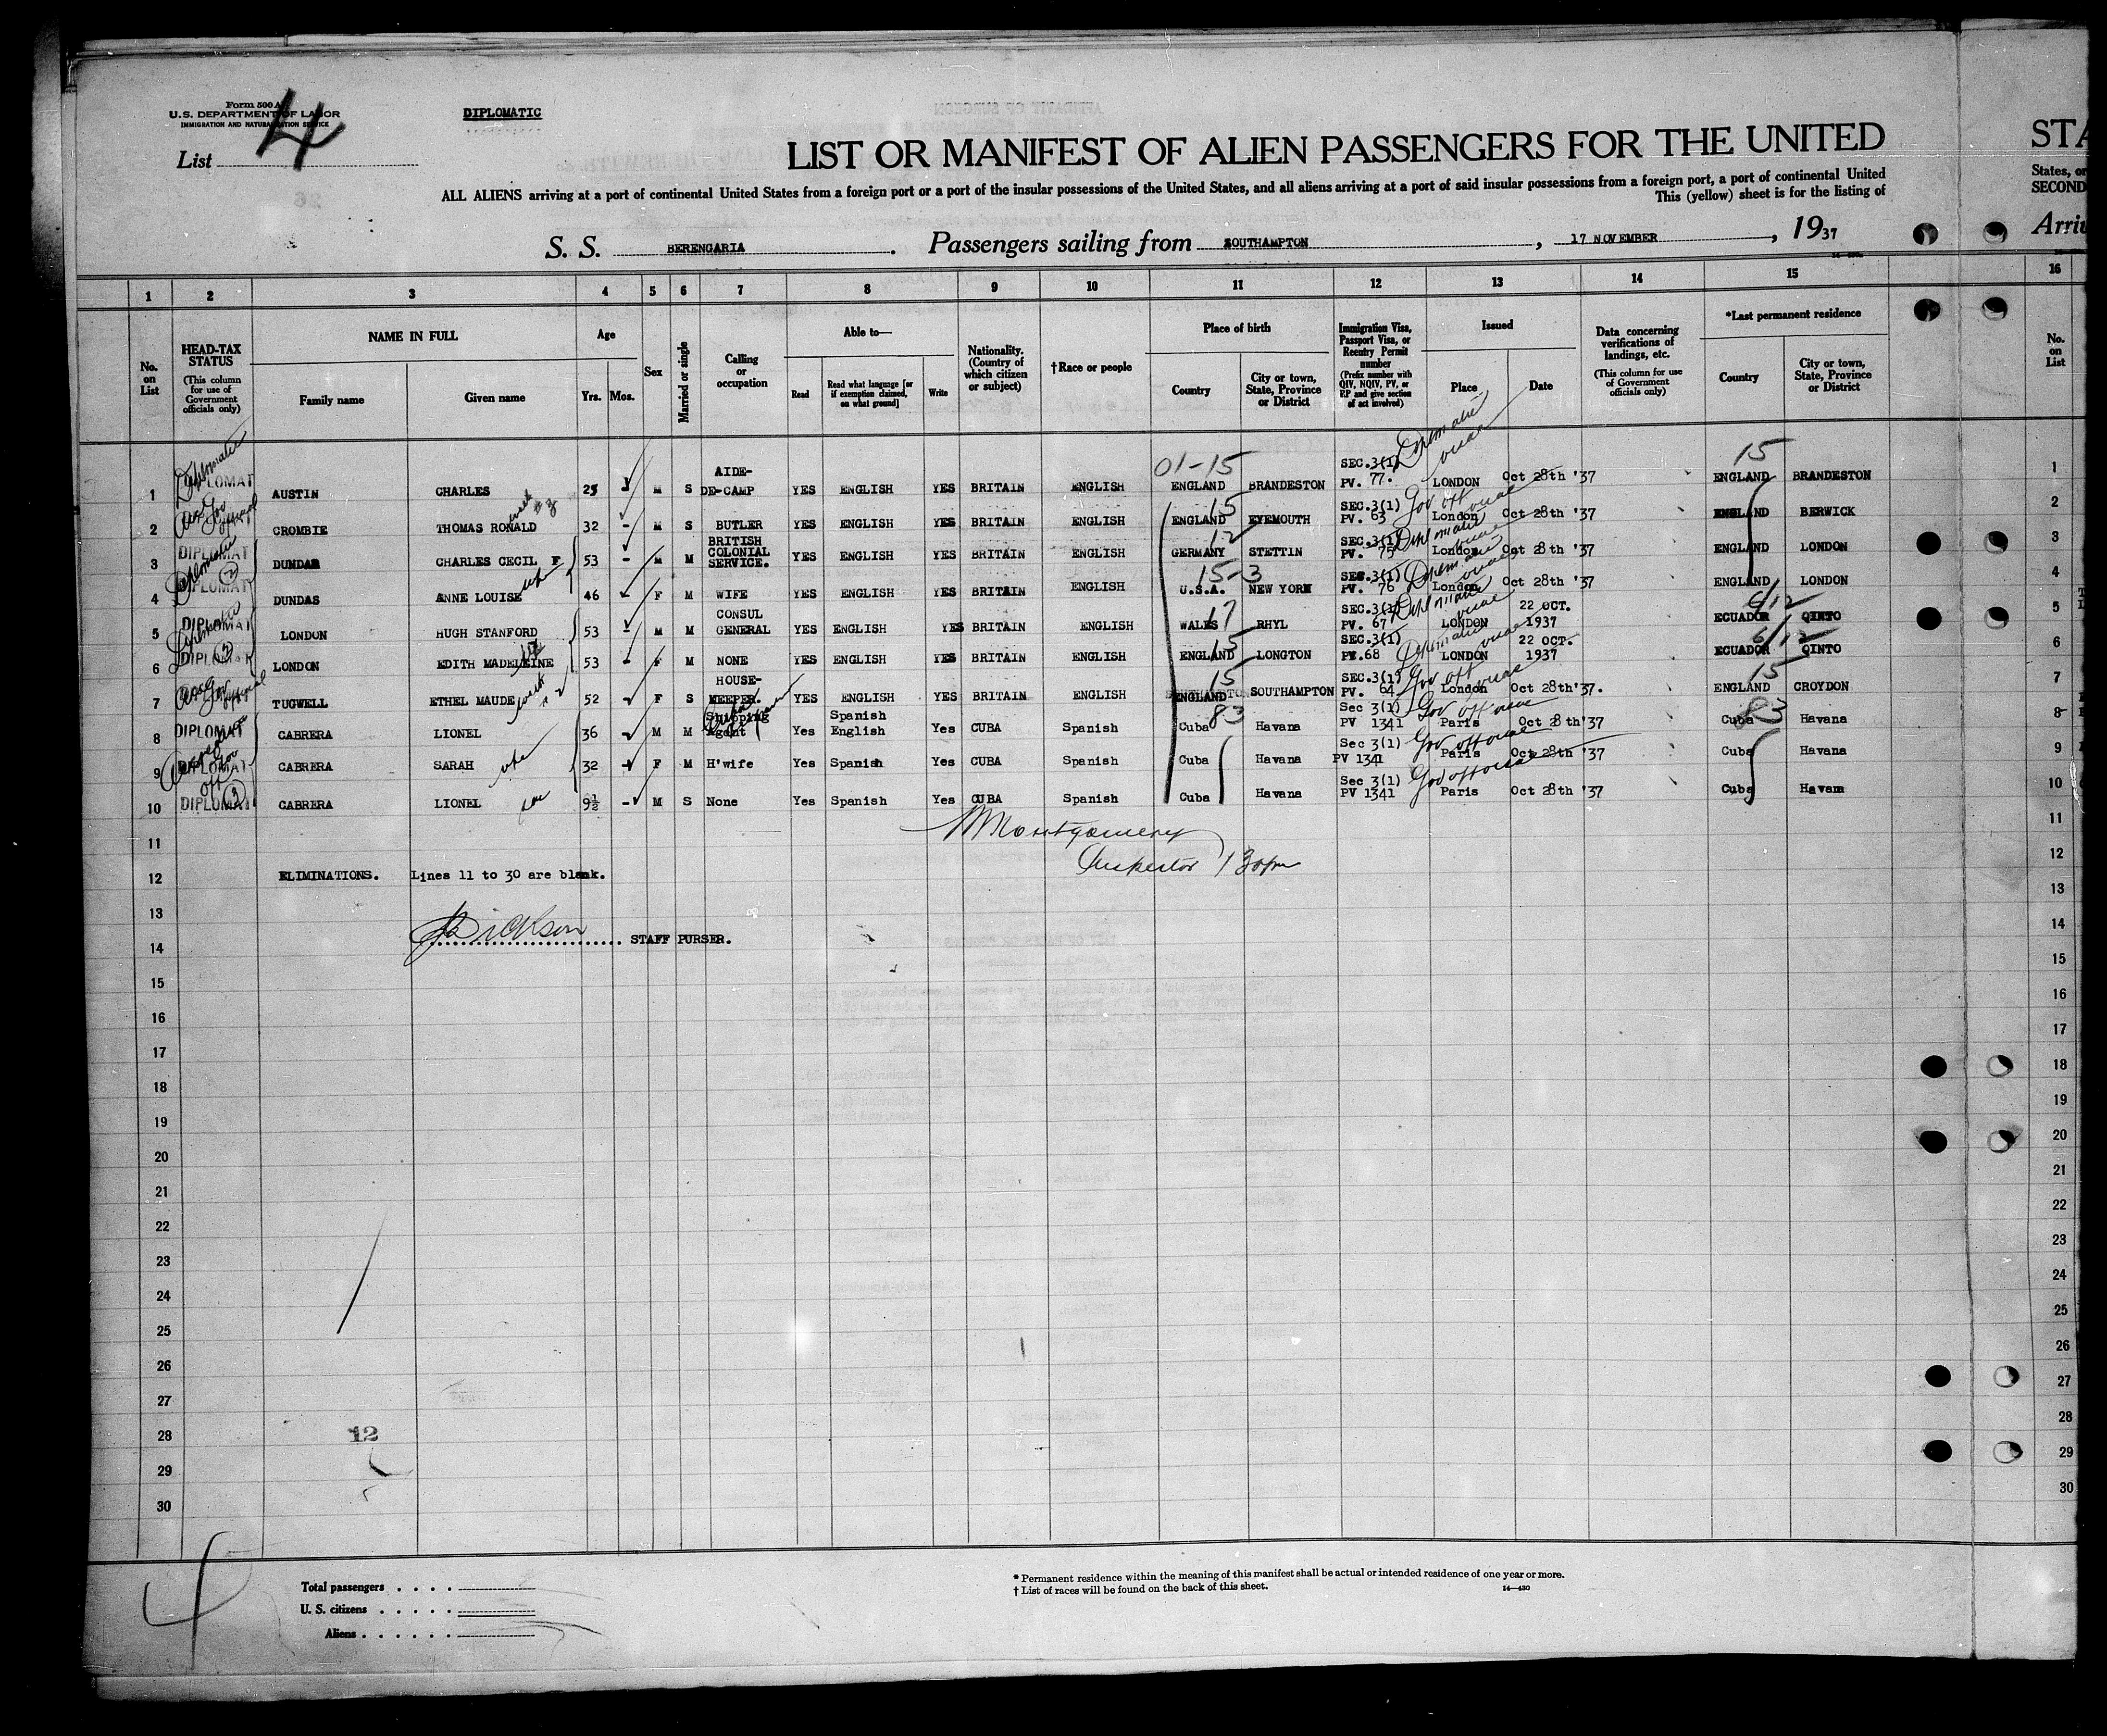 Form 500 A
U.S. DEPARTMENT OF LABOR
IMMIGRATION AND NATURALIZATION SERVICE
DIPLOMATIC
List 4
LIST OR MANIFEST OF ALIEN PASSENGERS FOR THE UNITED
STA
ALL ALIENS arriving at a port of continental United States from a foreign port or a port of the insular possessions of the United States, and all aliens arriving at a port of said insular possessions from a foreign port, a port of continental United
States, or
This (yellow) sheet is for the listing of
SECOND
S. S. BERENGARIA. Passengers sailing from SOUTHAMPTON, 17 NOVEMBER, 1937
Arriv
1 2 3 4 5 6 7 8 9 10 11 12 13 14 15 16
No. on List
HEAD-TAX STATUS (This column for use of Government officials only)
NAME IN FULL
Family name
Given name
Age
Yrs. Mos.
Sex
Married or single
Calling or occupation
Able to—
Read
Read what language [or if exemption claimed, on what ground]
Write
Nationality. (Country of which citizen or subject)
†Race or people
Place of birth
Country
City or town, State, Province or District
Immigration Visa, Passport Visa, or Reentry Permit number (Prefix number with QIV, NQIV, PV, or RP and give section of act involved)
Issued
Place
Date
Data concerning verifications of landings, etc. (This column for use of Government officials only)
*Last permanent residence
Country
City or town, State, Province or District
No. on List
1 Diplomatic DIPLOMAT AUSTIN CHARLES 25 M S AIDE-DE-CAMP YES ENGLISH YES BRITAIN ENGLISH 01-15 ENGLAND BRANDESTON SEC.3(1) PV. 77. Diplomatic visa LONDON Oct 28th '37 15 ENGLAND BRANDESTON 1
2 CROMBIE THOMAS RONALD 32 - M S BUTLER YES ENGLISH YES BRITAIN ENGLISH 15 ENGLAND EYEMOUTH SEC.3(1) PV. 63 London Oct 28th '37 ENGLAND BERWICK 2
3 DIPLOMAT DUNDAS CHARLES CECIL F 53 - M M BRITISH COLONIAL SERVICE. YES ENGLISH YES BRITAIN ENGLISH 12 GERMANY STETTIN SEC.3(1) PV. 75 London Oct 28th '37 ENGLAND LONDON 3
4 DIPLOMAT DUNDAS ANNE LOUISE 46 - F M WIFE YES ENGLISH YES BRITAIN ENGLISH 15-3 U.S.A. NEW YORK SEC.3(1) PV. 76 London Oct 28th '37 ENGLAND LONDON 4
5 DIPLOMAT LONDON HUGH STANFORD 53 - M M CONSUL GENERAL YES ENGLISH YES BRITAIN ENGLISH 17 WALES RHYL SEC.3(1) PV. 67 LONDON 22 OCT. 1937 6/12 ECUADOR QINTO 5
6 DIPLOMAT LONDON EDITH MADELEINE 53 - F M NONE YES ENGLISH YES BRITAIN ENGLISH 15 ENGLAND LONGTON SEC.3(1) PV.68 LONDON 22 OCT. 1937 6/12 ECUADOR QINTO 6
7 TUGWELL ETHEL MAUDE 52 F S HOUSE-KEEPER. YES ENGLISH YES BRITAIN ENGLISH 15 ENGLAND SOUTHAMPTON SEC.3(1) PV. 64 London Oct 28th'37. 15 ENGLAND CROYDON 7
8 DIPLOMAT CABRERA LIONEL 36 M M Shipping Agent Yes Spanish English Yes CUBA Spanish 83 Cuba Havana Sec 3(1) PV 1341 Paris Oct 28th'37 83 Cuba Havana 8
9 DIPLOMAT CABRERA SARAH 32 F M H'wife Yes Spanish Yes CUBA Spanish Cuba Havana Sec 3(1) PV 1341 Paris Oct 28th '37 Cuba Havana 9
10 DIPLOMAT CABRERA LIONEL 9½ - M S None Yes Spanish Yes CUBA Spanish Cuba Havana Sec 3(1) PV 1341 Paris Oct 28th '37 Cuba Havam 10
11 Montgomery 11
Inspector 130pm
12 ELIMINATIONS. Lines 11 to 30 are blank. 12
13 13
14 STAFF PURSER. 14
15 15
16 16
17 17
18 18
19 19
20 20
21 21
22 22
23 23
24 24
25 25
26 26
27 27
28 12 28
29 29
30 30
Total passengers
U. S. citizens
Aliens
* Permanent residence within the meaning of this manifest shall be actual or intended residence of one year or more.
† List of races will be found on the back of this sheet.
14—430